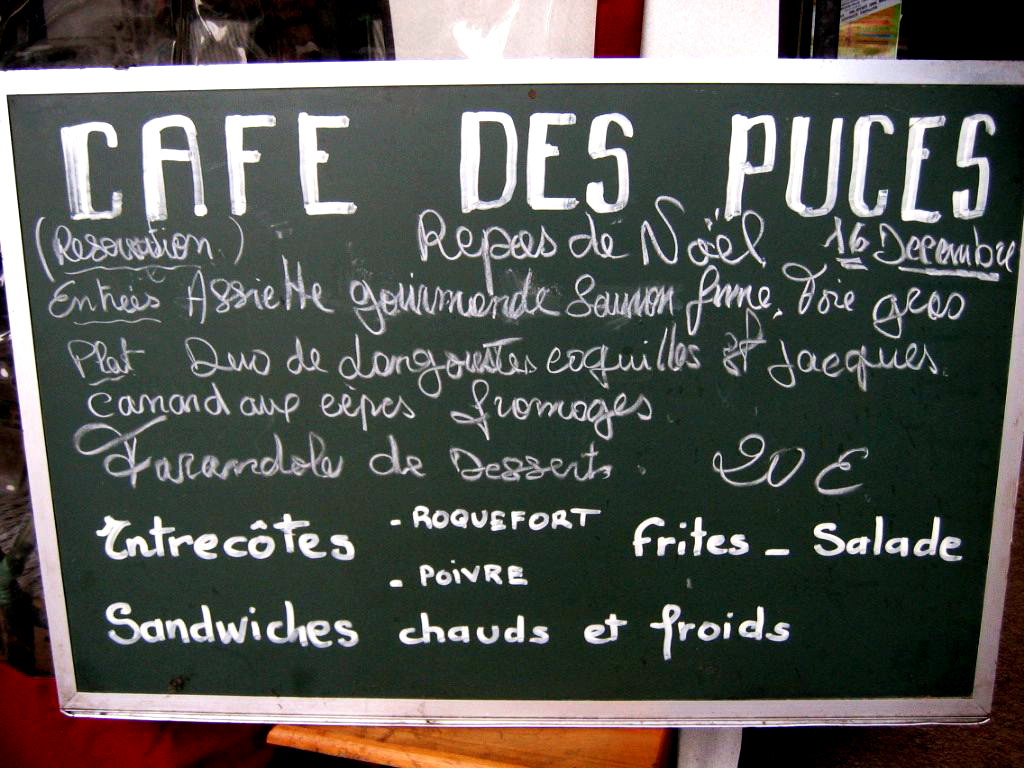 CAFE DES PUCES
(Reservation) Repas de Noël 16 Decembre
Entrées Assiette gourmande Saumon fumé. Foie gras
Plat Duo de Langoustes coquilles St Jacques
Canard aux cèpes fromages
Farandole de Desserts. 20 €
Entrecôtes - ROQUEFORT frites - Salade
- POIVRE
Sandwiches chauds et froids